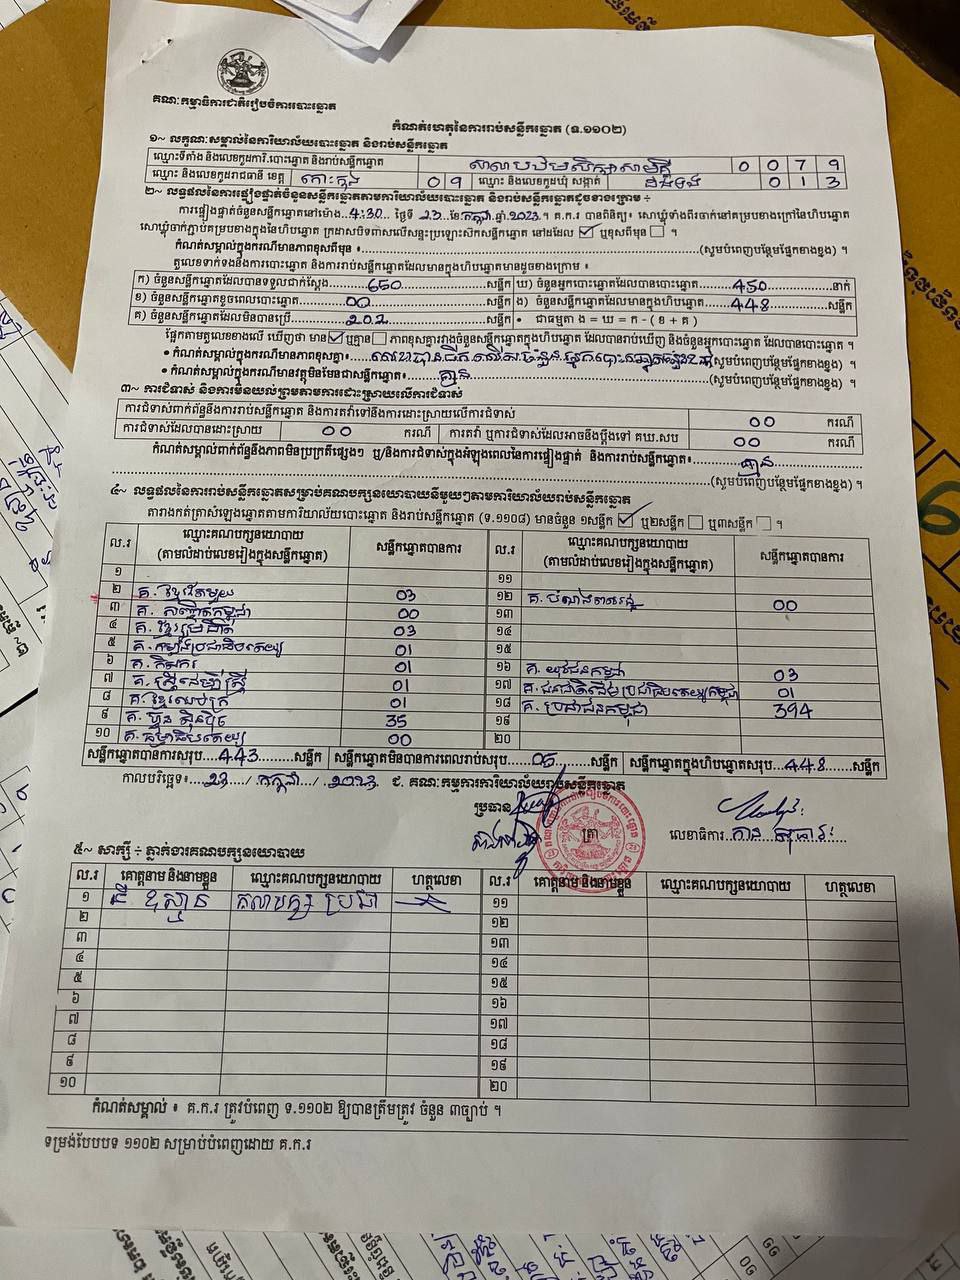 គណៈកម្មាធិការជាតិរៀបចំការបោះឆ្នោត
កំណត់ហេតុនៃការរាប់សន្លឹកឆ្នោត (ទ.១១០២)
១~ លក្ខណៈសម្គាល់នៃការិយាល័យបោះឆ្នោត និងរាប់សន្លឹកឆ្នោត
ឈ្មោះទីតាំង និងលេខកូដការិ.បោះឆ្នោត និងរាប់សន្លឹកឆ្នោត សាលាបឋមសិក្សាសាមគ្គី 0 0 7 9
ឈ្មោះ និងលេខកូដរាជធានី ខេត្ត កោះកុង 0 9 ឈ្មោះ និងលេខកូដឃុំ សង្កាត់ ដងទង់ 0 1 3
២~ លទ្ធផលនៃការផ្ទៀងផ្ទាត់ចំនួនសន្លឹកឆ្នោតតាមការិយាល័យបោះឆ្នោត និងរាប់សន្លឹកឆ្នោតដូចខាងក្រោម ÷
ការផ្ទៀងផ្ទាត់ចំនួនសន្លឹកឆ្នោតនៅម៉ោង..4:30.. ថ្ងៃទី 23 ខែកក្កដា ឆ្នាំ 2023 ។ គ.ក.រ បានពិនិត្យ ៖ សោឃ្លុំទាំងពីរចាក់នៅគម្របខាងក្រៅនៃហិបឆ្នោត
សោឃ្លុំចាក់ភ្ជាប់គម្របខាងក្នុងនៃហិបឆ្នោត ក្រដាសបិទពាសលើសន្ទះប្រឡោះសឹកសន្លឹកឆ្នោត នៅដដែល ☑ ឬខុសពីមុន ☐ ។
កំណត់សម្គាល់ក្នុងករណីមានភាពខុសពីមុន ៖ (សូមបំពេញបន្ថែមផ្នែកខាងខ្នង) ។
តួលេខទាក់ទងនឹងការបោះឆ្នោត និងការរាប់សន្លឹកឆ្នោតដែលមានក្នុងហិបឆ្នោតមានដូចខាងក្រោម ៖
ក) ចំនួនសន្លឹកឆ្នោតដែលបានទទួលជាក់ស្តែង 650 សន្លឹក ឃ) ចំនួនអ្នកបោះឆ្នោតដែលបានបោះឆ្នោត 450 នាក់
ខ) ចំនួនសន្លឹកឆ្នោតខូចពេលបោះឆ្នោត 00 សន្លឹក ង) ចំនួនសន្លឹកឆ្នោតដែលមានក្នុងហិបឆ្នោត 448 សន្លឹក
គ) ចំនួនសន្លឹកឆ្នោតដែលមិនបានប្រើ 202 សន្លឹក • ជាធម្មតា ង = ឃ = ក - ( ខ + គ )
ផ្អែកតាមតួលេខខាងលើ ឃើញថា មាន ☑ ឬគ្មាន ☐ ភាពខុសគ្នារវាងចំនួនសន្លឹកឆ្នោតក្នុងហិបឆ្នោត ដែលបានរាប់ឃើញ និងចំនួនអ្នកបោះឆ្នោត ដែលបានបោះឆ្នោត ។
• កំណត់សម្គាល់ក្នុងករណីមានភាពខុសគ្នា៖ (សូមបំពេញបន្ថែមផ្នែកខាងខ្នង) ។
• កំណត់សម្គាល់ក្នុងករណីមានវត្ថុមិនមែនជាសន្លឹកឆ្នោត៖ គ្មាន (សូមបំពេញបន្ថែមផ្នែកខាងខ្នង) ។
៣~ ការជំទាស់ និងការមិនយល់ព្រមតាមការដោះស្រាយលើការជំទាស់
ការជំទាស់ពាក់ព័ន្ធនឹងការរាប់សន្លឹកឆ្នោត និងការតវ៉ាទៅនឹងការដោះស្រាយលើការជំទាស់ 00 ករណី
ការជំទាស់ដែលបានដោះស្រាយ 00 ករណី ការតវ៉ា ឬការជំទាស់ដែលអាចនឹងប្តឹងទៅ គឃ.សប 00 ករណី
កំណត់សម្គាល់ពាក់ព័ន្ធនឹងភាពមិនប្រក្រតីផ្សេងៗ ឬ/និងការជំទាស់ក្នុងអំឡុងពេលនៃការផ្ទៀងផ្ទាត់ និងការរាប់សន្លឹកឆ្នោត៖ គ្មាន
(សូមបំពេញបន្ថែមផ្នែកខាងខ្នង) ។
៤~ លទ្ធផលនៃការរាប់សន្លឹកឆ្នោតសម្រាប់គណបក្សនយោបាយនីមួយៗតាមការិយាល័យរាប់សន្លឹកឆ្នោត
តារាងកត់ត្រាសំឡេងឆ្នោតតាមការិយាល័យបោះឆ្នោត និងរាប់សន្លឹកឆ្នោត (ទ.១១០៨) មានចំនួន ១សន្លឹក ☑ ឬ២សន្លឹក ☐ ឬ៣សន្លឹក ☐ ។
ល.រ ឈ្មោះគណបក្សនយោបាយ (តាមលំដាប់លេខរៀងក្នុងសន្លឹកឆ្នោត) សន្លឹកឆ្នោតបានការ ល.រ ឈ្មោះគណបក្សនយោបាយ (តាមលំដាប់លេខរៀងក្នុងសន្លឹកឆ្នោត) សន្លឹកឆ្នោតបានការ
១ ១១
២ គ. ខ្មែរតែមួយ 03 ១២ គ. 00
៣ គ. កម្ពុជា 00 ១៣
៤ គ. ខ្មែររួបរួមជាតិ 03 ១៤
៥ គ. កម្លាំងប្រជាធិបតេយ្យ 01 ១៥
៦ គ. កសិករ 01 ១៦ គ. យុវជនកម្ពុជា 03
៧ គ. ស្ត្រីដើម្បីស្ត្រី 01 ១៧ គ. ជនជាតិដើមប្រជាធិបតេយ្យកម្ពុជា 01
៨ គ. ខ្មែរឈប់ក្រ 01 ១៨ គ. ប្រជាជនកម្ពុជា 394
៩ គ. ហ៊្វុនស៊ិនប៉ិច 35 ១៩
១០ គ. ធម្មាធិបតេយ្យ 00 ២០
សន្លឹកឆ្នោតបានការសរុប 443 សន្លឹក សន្លឹកឆ្នោតមិនបានការពេលរាប់សរុប 05 សន្លឹក សន្លឹកឆ្នោតក្នុងហិបឆ្នោតសរុប 448 សន្លឹក
កាលបរិច្ឆេទ៖ 23 / កក្កដា / 2023 ជ. គណៈកម្មការការិយាល័យរាប់សន្លឹកឆ្នោត
ប្រធាន ត្រា លេខាធិការ
៥~ សាក្សី ÷ ភ្នាក់ងារគណបក្សនយោបាយ
ល.រ គោត្តនាម និងនាមខ្លួន ឈ្មោះគណបក្សនយោបាយ ហត្ថលេខា ល.រ គោត្តនាម និងនាមខ្លួន ឈ្មោះគណបក្សនយោបាយ ហត្ថលេខា
១ គណបក្ស ប្រជា ១១
២ ១២
៣ ១៣
៤ ១៤
៥ ១៥
៦ ១៦
៧ ១៧
៨ ១៨
៩ ១៩
១០ ២០
កំណត់សម្គាល់ ៖ គ.ក.រ ត្រូវបំពេញ ទ.១១០២ ឱ្យបានត្រឹមត្រូវ ចំនួន ៣ច្បាប់ ។
ទម្រង់បែបបទ ១១០២ សម្រាប់បំពេញដោយ គ.ក.រ